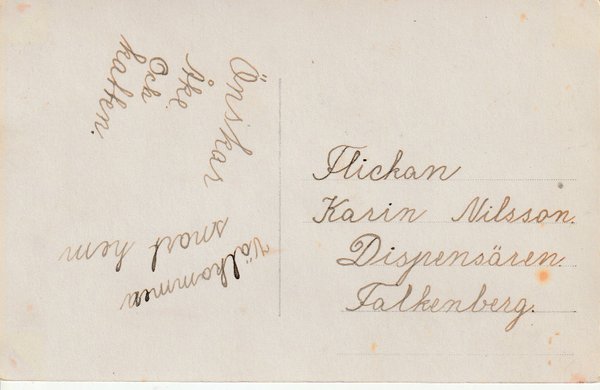 Önskar
Åke
Och
katten.
Välkommen
snart hem
Flickan
Karin Nilsson.
Dispensären.
Falkenberg.